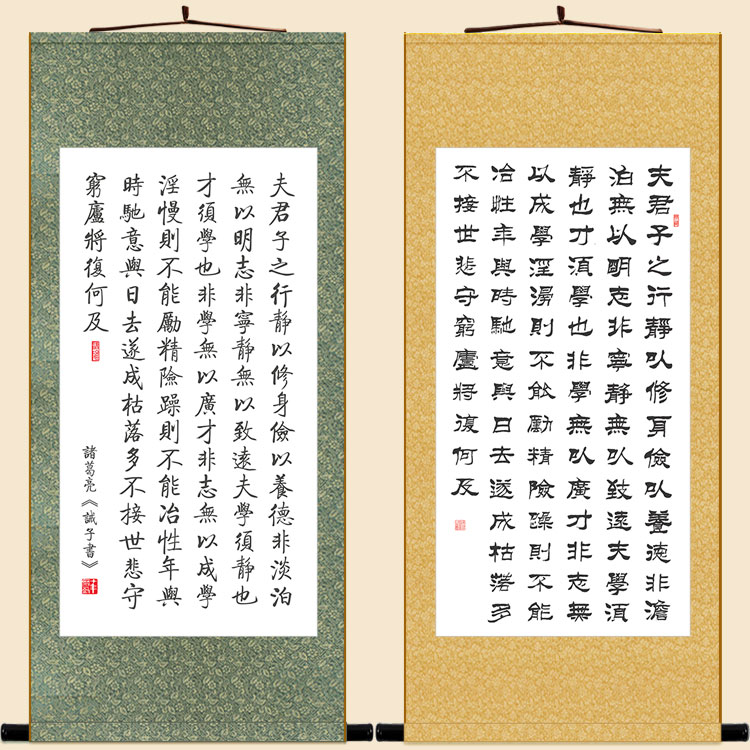 夫君子之行靜以修身儉以養德非淡泊
無以明志非寧靜無以致遠夫學須靜也
才須學也非學無以廣才非志無以成學
淫慢則不能勵精險躁則不能冶性年與
時馳意與日去遂成枯落多不接世悲守
窮廬將復何及
諸葛亮《誡子書》
夫君子之行靜以修身儉以養德非澹
泊無以明志非寧靜無以致遠夫學須
靜也才須學也非學無以廣才非志無
以成學淫則不能勵精險躁則不能
冶性年與時馳意與日去遂成枯落多
不接世悲守窮廬將復何及